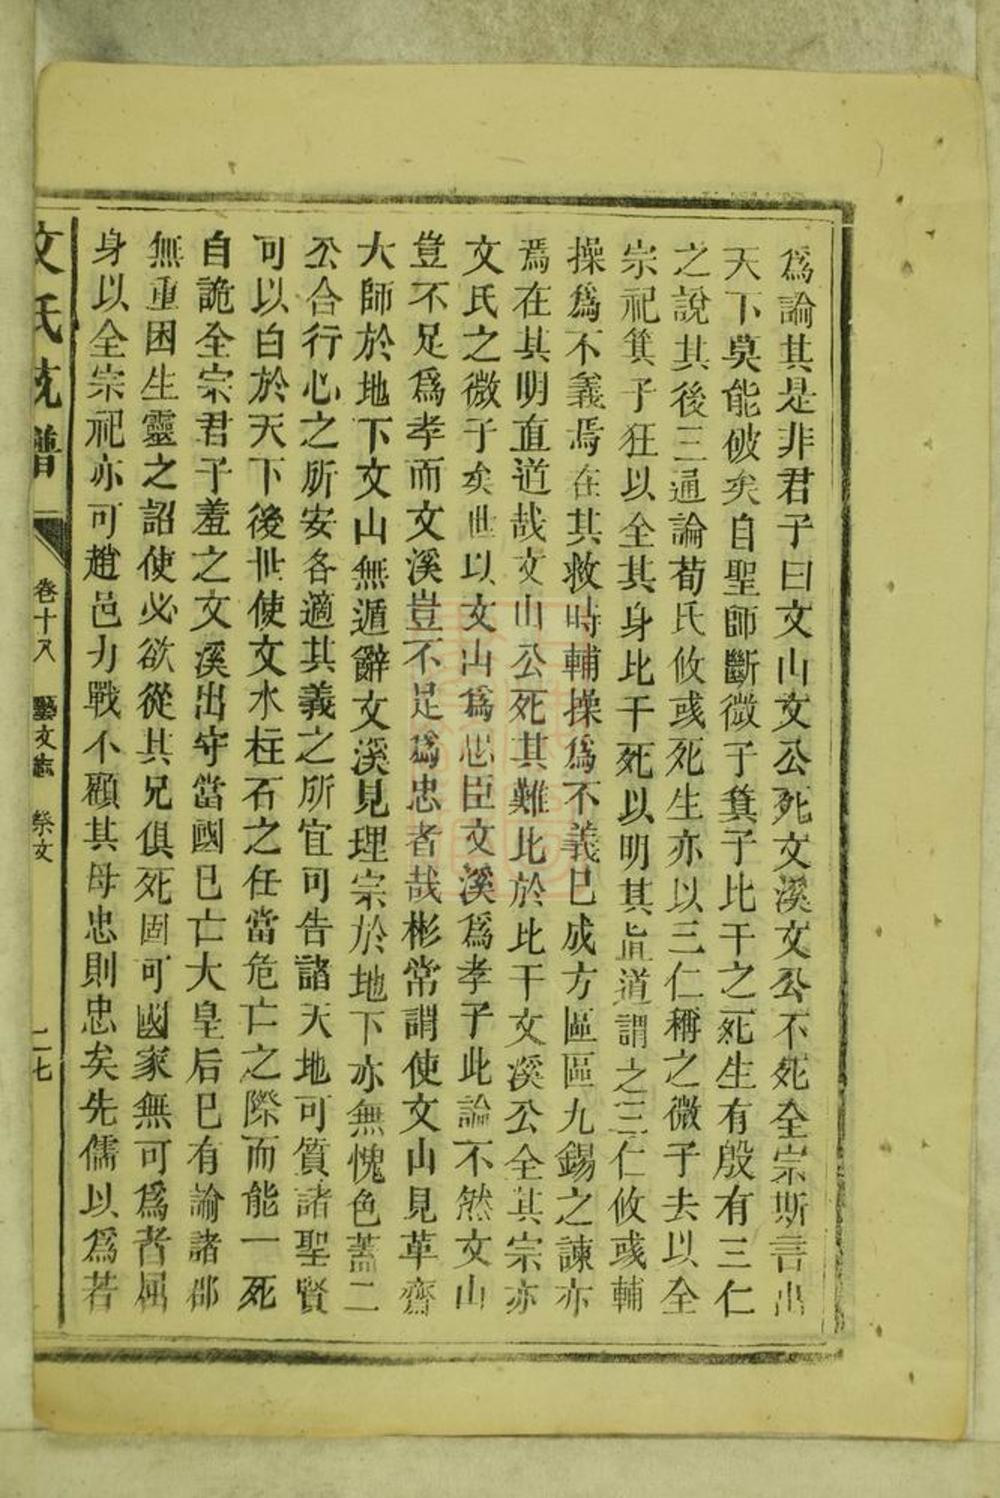 為論其是非君子曰文山文公死文溪文公不死全宗斯言出
天下莫能破矣自聖師斷微子箕子比干之死生有殷有三仁
之說其後三通論荀氏攸彧死生亦以三仁稱之微子去以全
宗祀箕子狂以全其身比干死以明其直道謂之三仁攸彧輔
操爲不義焉在其救時輔操爲不義巳成方區區九錫之諫亦
焉在其明直道哉文山公死其難比於比干文溪公全其宗亦
文氏之微子矣世以文山爲忠臣文溪爲孝子此論不然文山
豈不足爲孝而文溪豈不足爲忠者哉彬常謂使文山見革齋
大師於地下文山無遁辭文溪見理宗於地下亦無愧色蓋二
公合行心之所安各適其義之所宜可告諸天地可質諸聖賢
可以白於天下後世使文水柱石之任當危亡之際而能一死
自詭全宗君子羞之文溪出守當國巳亡大皇后巳有諭諸郡
無重困生靈之詔使必欲從其兄俱死固可國家無可爲者屈
身以全宗祀亦可趙邑力戰不顧其母忠則忠矣先儒以爲若
文氏統譜 卷十八 藝文志 祭文 二七